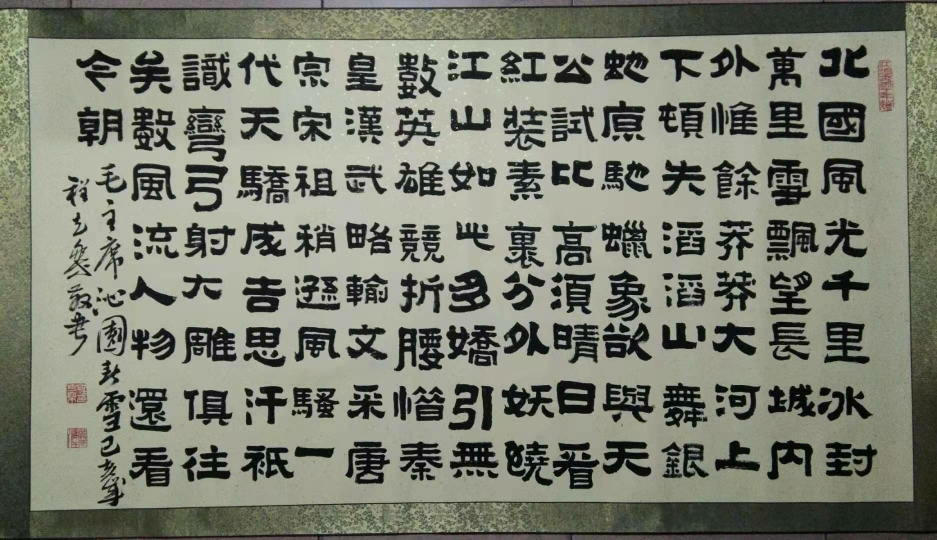 北國風光千里冰封
萬里雪飄望長城內
外惟餘莽莽大河上
下頓失滔滔山舞銀
虵原馳蠟象欲與天
公試比高須晴日看
紅裝素裹分外妖嬈
江山如此多嬌引無
數英雄競折腰惜秦
皇漢武略輸文采唐
宗宋祖稍遜風騷一
代天驕成吉思汗衹
識彎弓射大雕俱往
矣數風流人物還看
今朝
毛主席沁園春雪己亥年
敬書